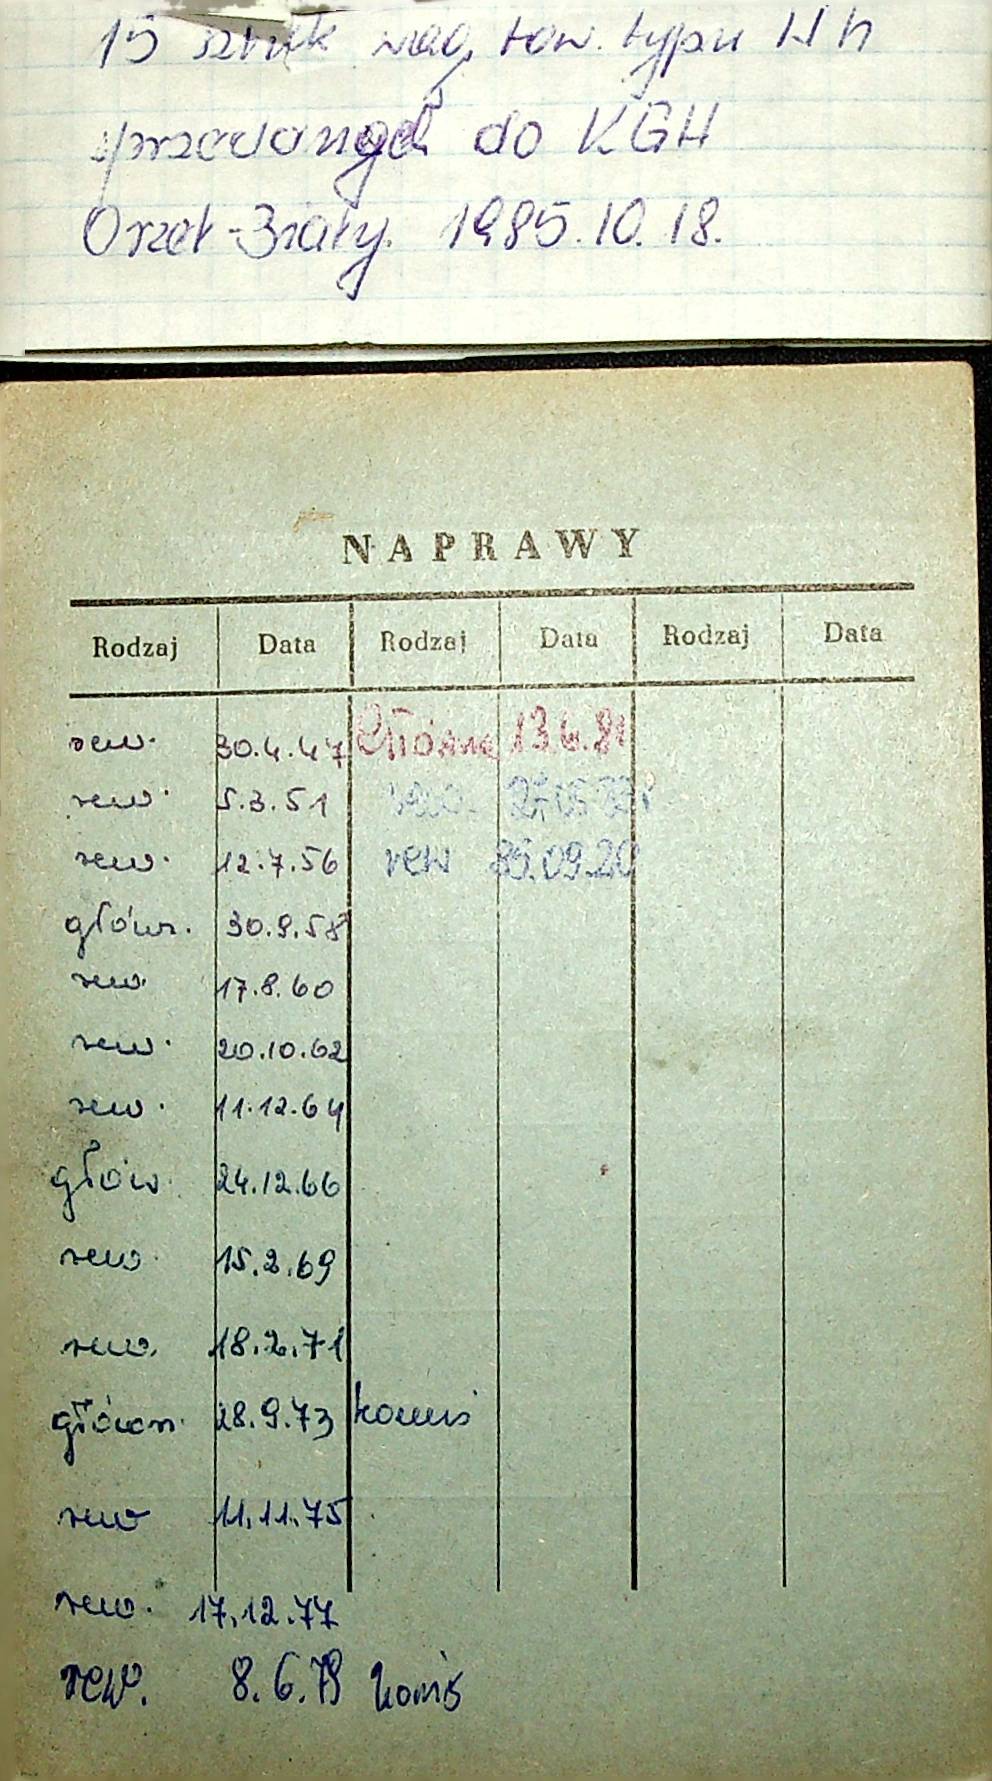 15 sztuk wag. tow. typu Wh
sprzedanych do KGH
Orzeł-Biały. 1985.10.18.
NAPRAWY
Rodzaj Data Rodzaj Data Rodzaj Data
rew. 30.4.47 Główna 13.6.81
rew. 5.3.51 rew.
rew. 12.7.56 rew 85.09.20
główn. 30.9.58
rew. 17.8.60
rew. 20.10.62
rew. 11.12.64
głów. 24.12.66
rew. 15.2.69
rew. 18.2.71
główn. 28.9.73 komis
rew 11.11.75
rew. 17.12.77
rew. 8.6.79 komis